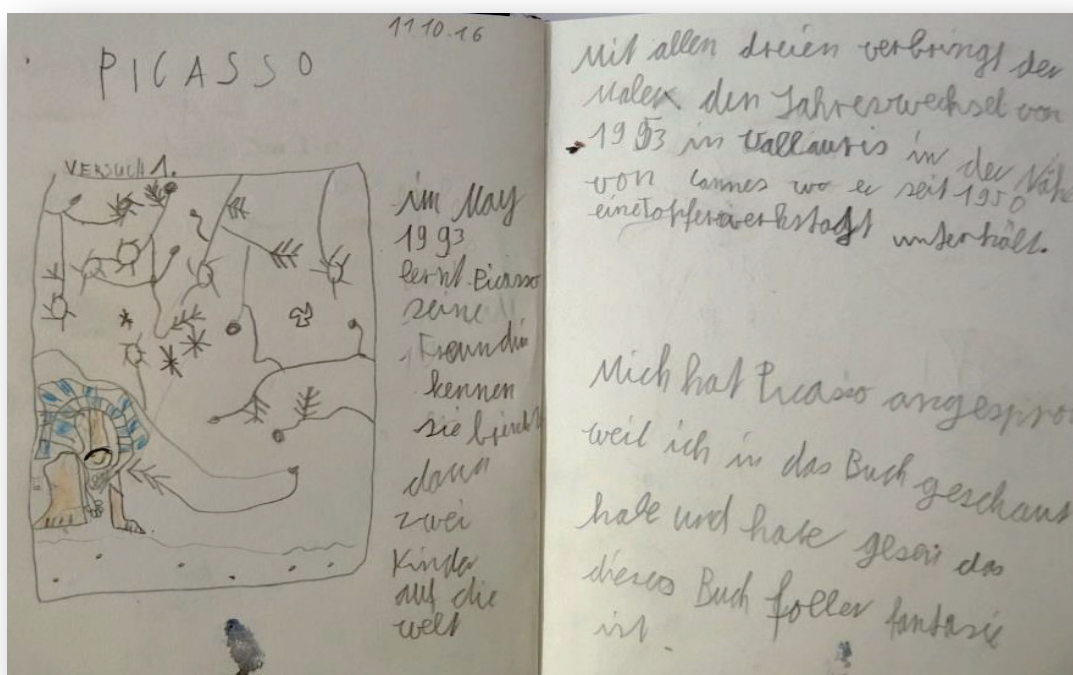 11.10.16
PICASSO
VERSUCH 1.
im May
1993
lernt Picasso
seine
Freundin
kennen
sie
dann
zwei
Kinder
auf die
welt
Mit allen dreien verbringt der
Maler den Jahreswechsel von
1953 in Vallauris in der Nähe
von Cannes wo er seit 1950
eine Topferwerkstadt unterhält.
Mich hat Picasso angespro
weil ich in das Buch geschaut
habe und habe gesen das
dieses Buch foller fantasie
ist.